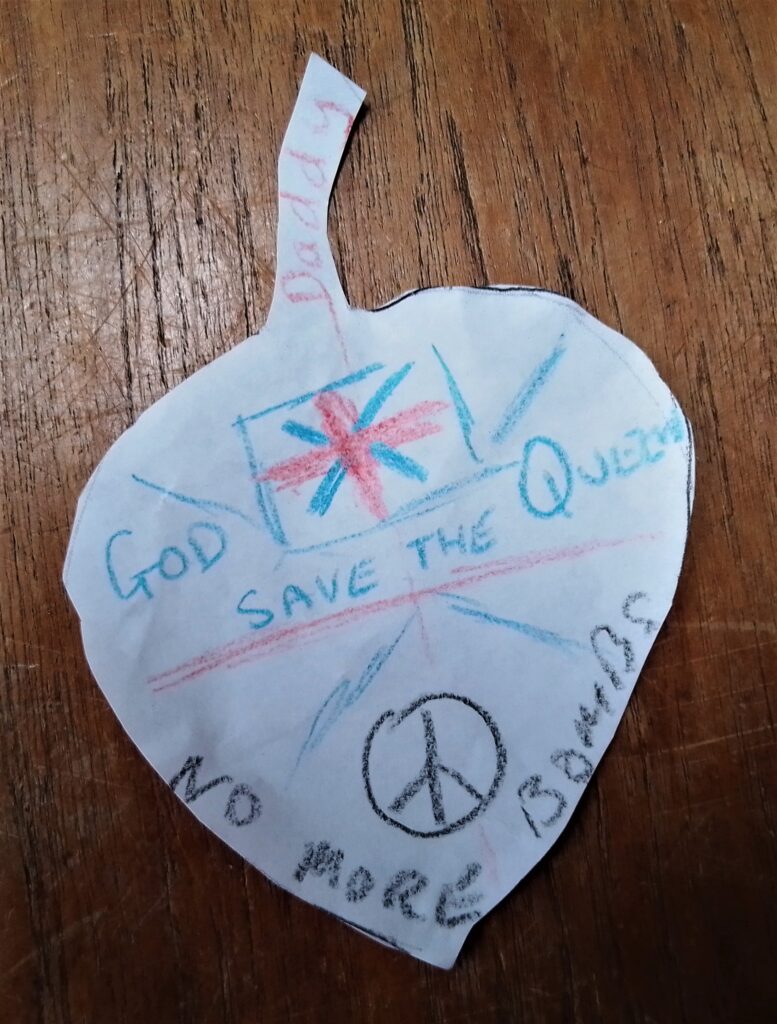 Daddy
GOD SAVE THE QUEEN
NO MORE BOMBS